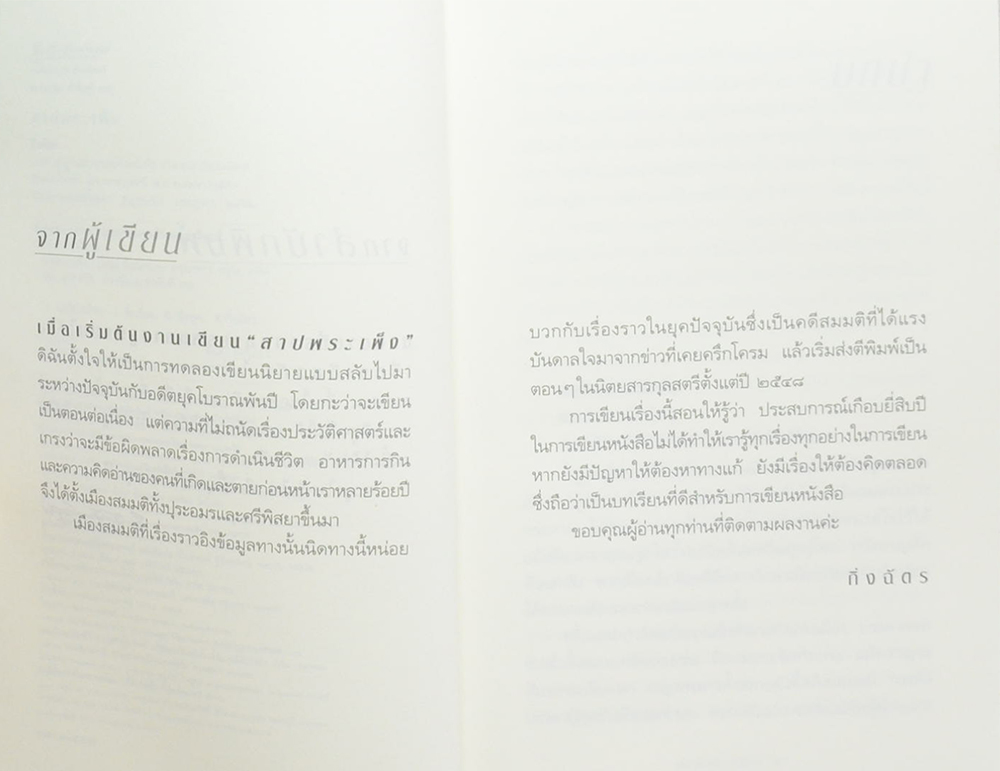 จากผู้เขียน
เมื่อเริ่มต้นงานเขียน “สาปพระเพ็ง”
ดิฉันตั้งใจให้เป็นการทดลองเขียนนิยายแบบสลับไปมา
ระหว่างปัจจุบันกับอดีตยุคโบราณพันปี โดยกะว่าจะเขียน
เป็นตอนต่อเนื่อง แต่ความที่ไม่ถนัดเรื่องประวัติศาสตร์และ
เกรงว่าจะมีข้อผิดพลาดเรื่องการดำเนินชีวิต อาหารการกิน
และความคิดอ่านของคนที่เกิดและตายก่อนหน้าเราหลายร้อยปี
จึงได้ตั้งเมืองสมมติทั้งปุระอมรและศรีพิสยาขึ้นมา
เมืองสมมติที่เรื่องราวอิงข้อมูลทางนั้นนิดทางนี้หน่อย
บวกกับเรื่องราวในยุคปัจจุบันซึ่งเป็นคดีสมมติที่ได้แรง
บันดาลใจมาจากข่าวที่เคยครึกโครม แล้วเริ่มส่งตีพิมพ์เป็น
ตอนๆ ในนิตยสารกุลสตรีตั้งแต่ปี ๒๕๔๘
การเขียนเรื่องนี้สอนให้รู้ว่า ประสบการณ์เกือบยี่สิบปี
ในการเขียนหนังสือไม่ได้ทำให้เรารู้ทุกเรื่องทุกอย่างในการเขียน
หากยังมีปัญหาให้ต้องหาทางแก้ ยังมีเรื่องให้ต้องคิดตลอด
ซึ่งถือว่าเป็นบทเรียนที่ดีสำหรับการเขียนหนังสือ
ขอบคุณผู้อ่านทุกท่านที่ติดตามผลงานค่ะ
กิ่งฉัตร